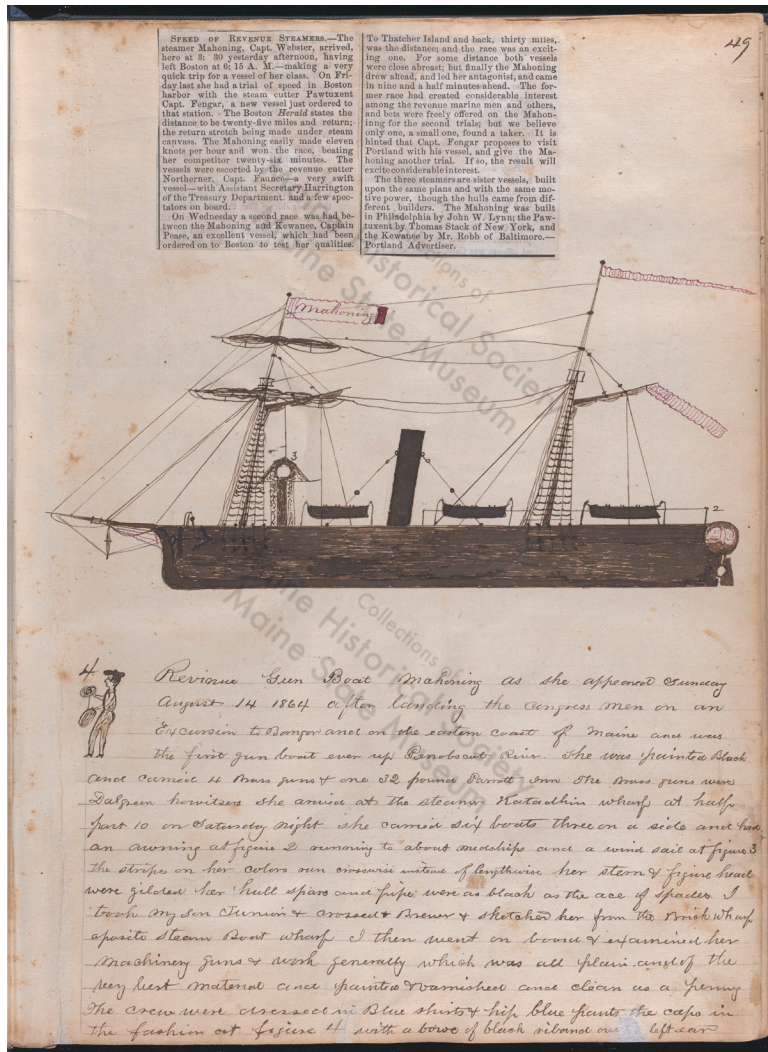 49
SPEED OF REVENUE STEAMERS.—The
steamer Mahoning, Capt. Webster, arrived,
here at 3; 30 yesterday afternoon, having
left Boston at 6; 15 A. M.—making a very
quick trip for a vessel of her class. On Fri-
day last she had a trial of speed in Boston
harbor with the steam cutter Pawtuxent
Capt. Fengar, a new vessel just ordered to
that station. The Boston Herald states the
distance to be twenty-five miles and return;
the return stretch being made under steam
canvass. The Mahoning easily made eleven
knots per hour and won the race, beating
her competitor twenty-six minutes. The
vessels were escorted by the revenue cutter
Northerner, Capt. Faunce—a very swift
vessel—with Assistant Secretary Harrington
of the Treasury Department and a few spec-
tators on board.
On Wednesday a second race was had be-
tween the Mahoning and Kewanee, Captain
Pease, an excellent vessel, which had been
ordered on to Boston to test her qualities.
To Thatcher Island and back, thirty miles,
was the distance; and the race was an excit-
ing one. For some distance both vessels
were close abreast; but finally the Mahoning
drew ahead, and led her antagonist, and came
in nine and a half minutes ahead. The for-
mer race had created considerable interest
among the revenue marine men and others,
and bets were freely offered on the Mahon-
inng for the second trials; but we believe
only one, a small one, found a taker. It is
hinted that Capt. Fengar proposes to visit
Portland with his vessel, and give the Ma-
honing another trial. If so, the result will
excite considerable interest.
The three steamers are sister vessels, built
upon the same plans and with the same mo-
tive power, though the hulls came from dif-
ferent builders. The Mahoning was built
in Philadelphia by John W. Lynn; the Paw-
tuxent by Thomas Stack of New York, and
the Kewanee by Mr. Robb of Baltimore.—
Portland Advertiser.
Mahoning
3
2
4
Revinue Gun Boat Mahoning as she appeared Sunday
August 14 1864 after landing the congress men on an
Excursion to Bangor and on the eastern coast of Maine and was
the first gun boat ever up Penobscot River. She was painted Black
and carried 4 Brass guns & one 32 pound Parrott Inn The Brass guns were
Dalgreen howitsers she arived at the steamer Katadhin wharf at half
past 10 on Saturday night she carried six boats three on a side and had
an awning at figure 2 running to about medships and a wind sail at figure 3
the strips on her colors run crosswise instead of lengthwise her stern & figure head
were gilded her hull spars and pipe were as black as the ace of spades I
took my son Junior & crossed to Brewer & sketched her from the Brick wharf
oposite Steam Boat wharf I then went on board & examined her
machinery guns & work generally which was all plain and of the
very best material and painted & varnished and clean as a penny
The crew were dressed in Blue shirts & hip blue pants the caps in
the fashion at figure 4 with a bowe of black riband over left ear
Collections of
Maine Historical Society
Maine State Museum
Collections of
Maine Historical Society
Maine State Museum